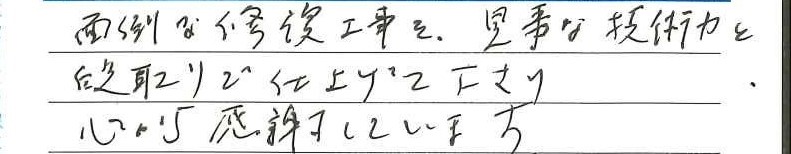 面倒な修復工事を、見事な技術力と
段取りで仕上げて下さり
心から感謝しています